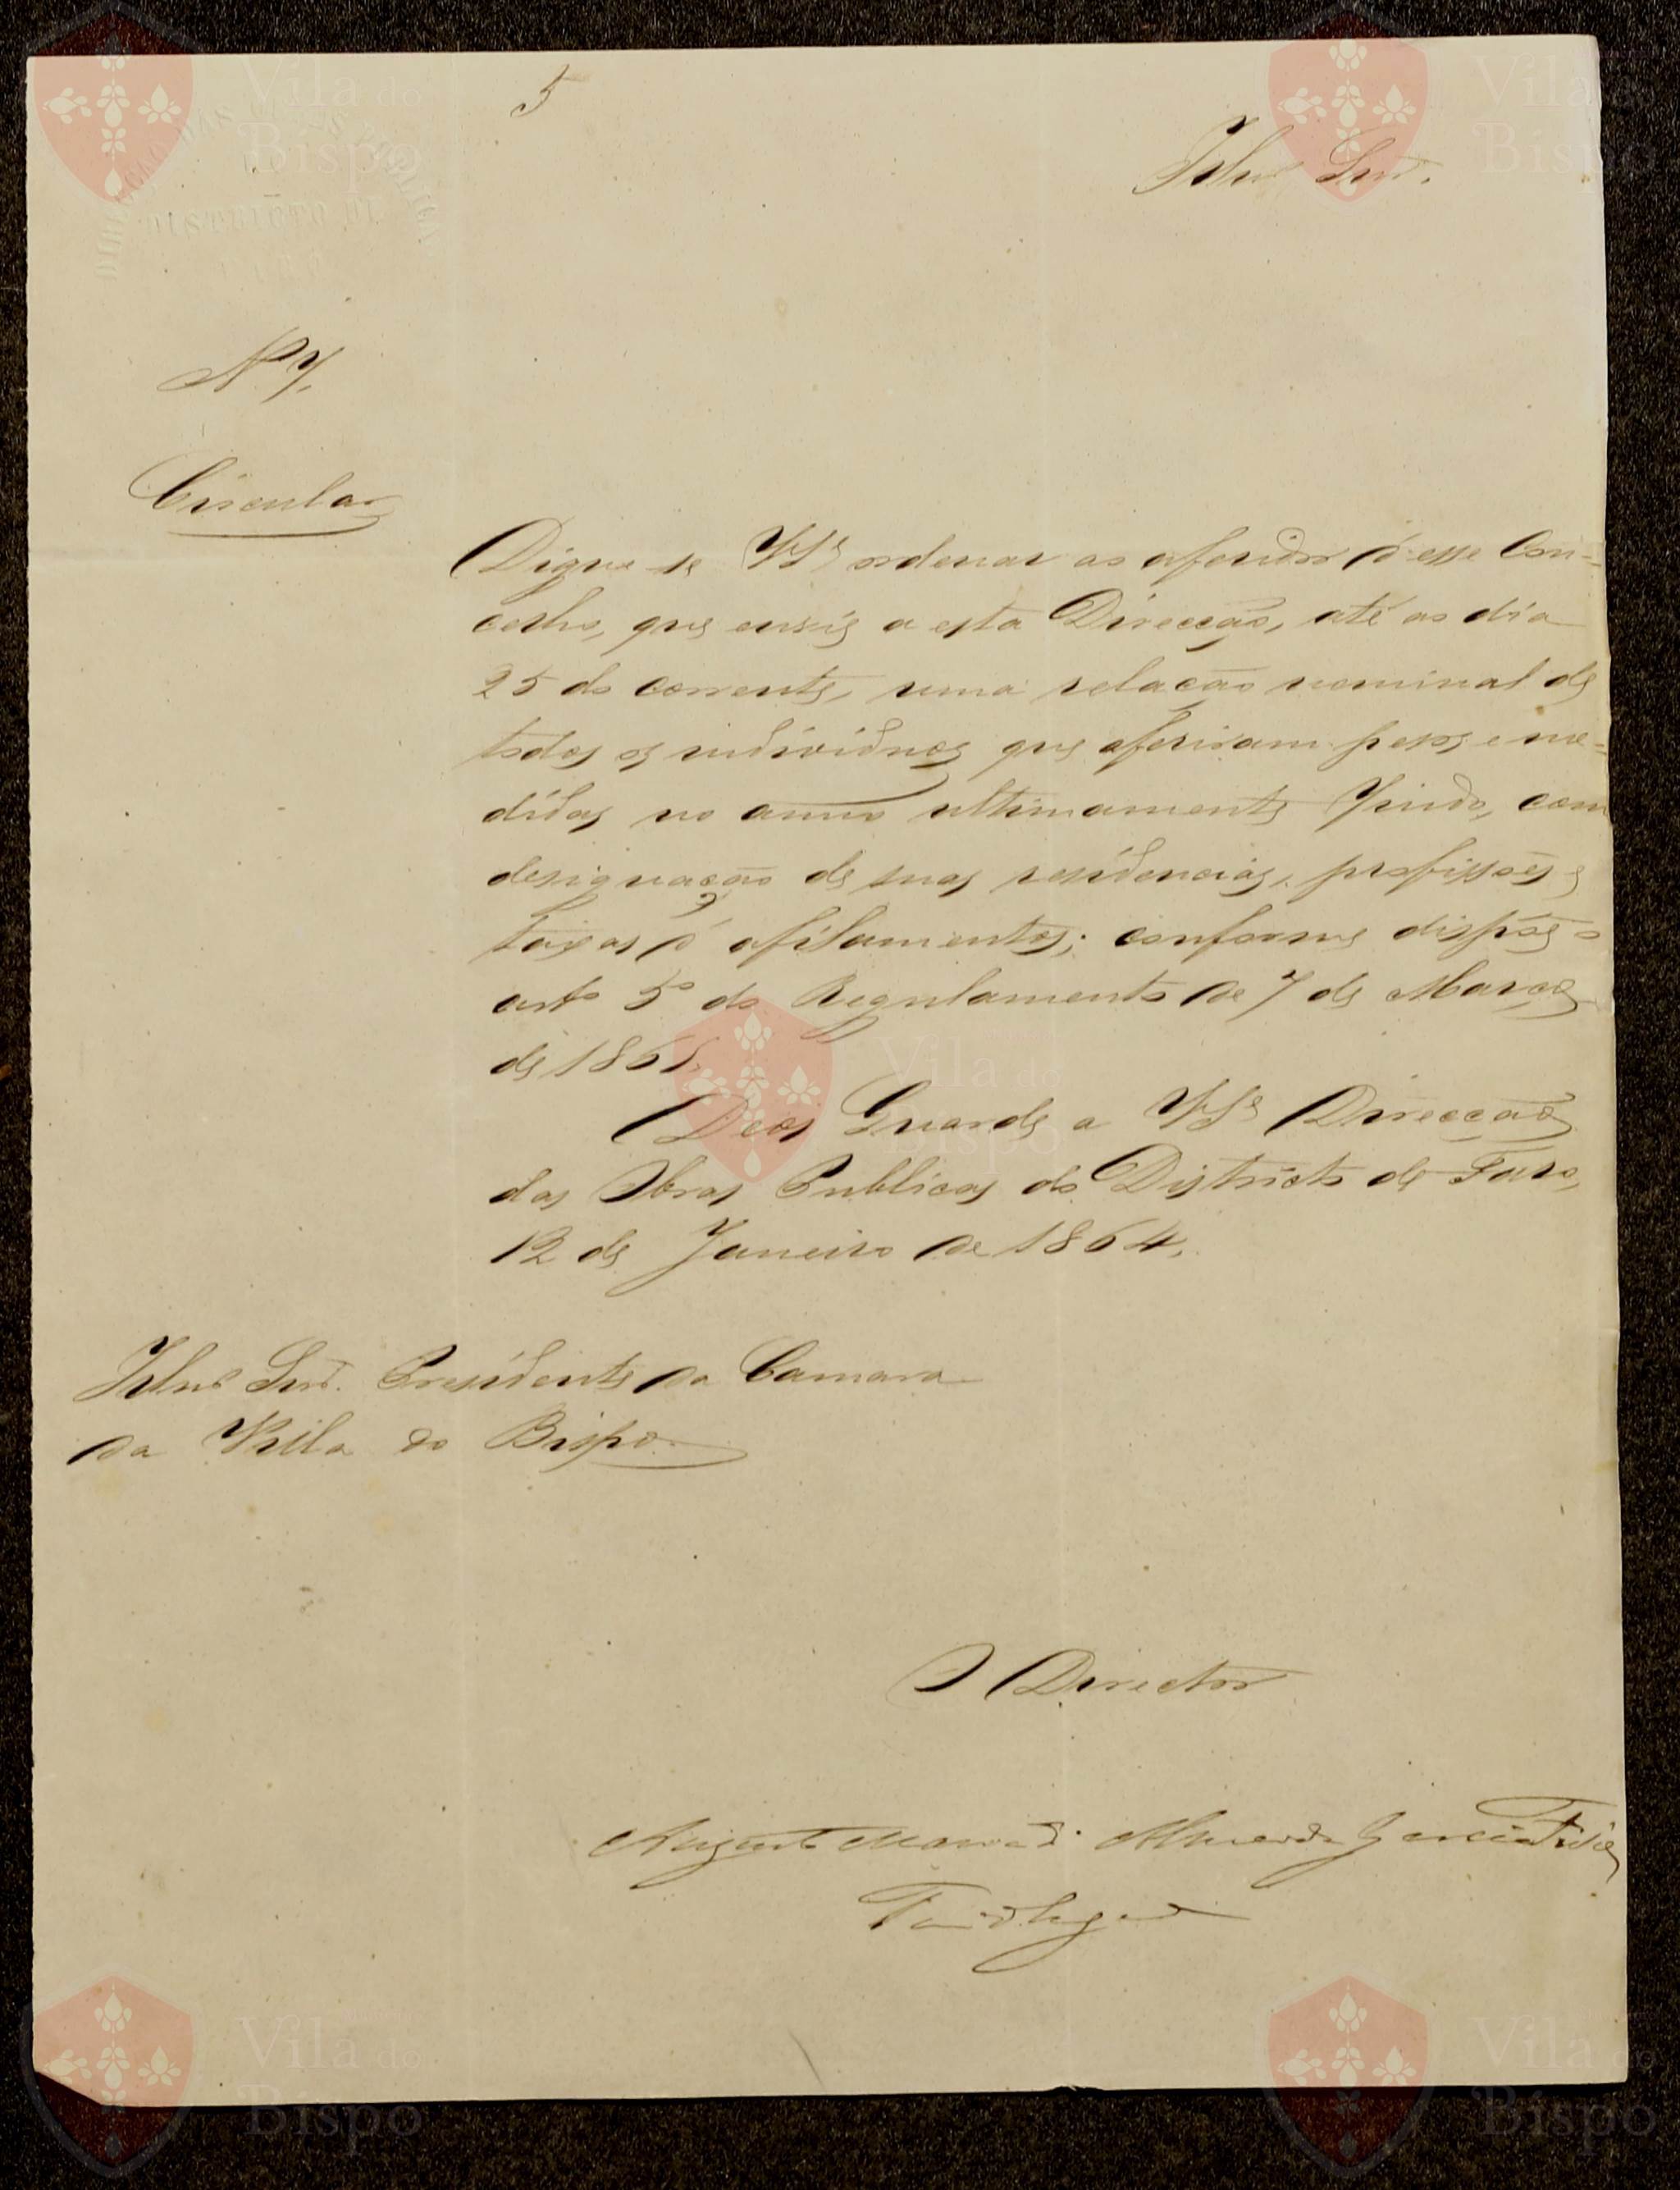 5
Illmo Snr.
DIRECÇÃO DAS OBRAS PUBLICAS
DISTRICTO DE
FARO
N.º 7.
Circular
Digne-se VSª ordenar ao aferidor d'esse Con-
celho, que envie a esta Direcção, até ao dia
25 do corrente, uma relação nominal de
todos os individuos que aferiram pesos e me-
didas no anno ultimamente findo, com
designação de suas residencias, profissões e
taxas d'afilamentos; conforme dispõe o
artº 5º do Regulamento de 7 de Março
de 1861.
Deos Guarde a VSª Direcção
das Obras Publicas do Districto de Faro,
12 de Janeiro de 1864.
Illmo Snr. Presidente da Camara
da Villa do Bispo.
O Director
Augusto Almeida Garcia
Vila do Bispo
Vila do Bispo
Vila do Bispo
Vila do Bispo
Vila do Bispo